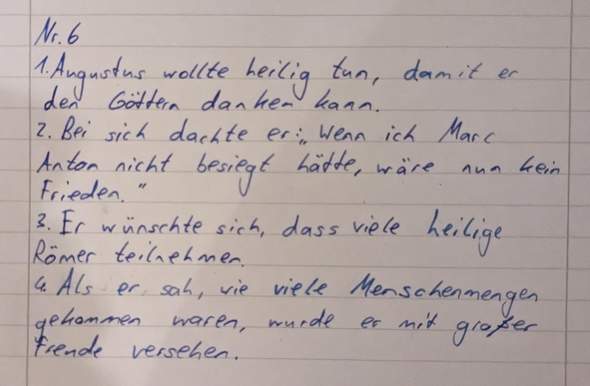 Nr. 6
1. Augustus wollte heilig tun, damit er
den Göttern danken kann.
2. Bei sich dachte er: „Wenn ich Marc
Anton nicht besiegt hätte, wäre nun kein
Frieden."
3. Er wünschte sich, dass viele heilige
Römer teilnehmen.
4. Als er sah, wie viele Menschenmengen
gekommen waren, wurde er mit großer
Freude versehen.